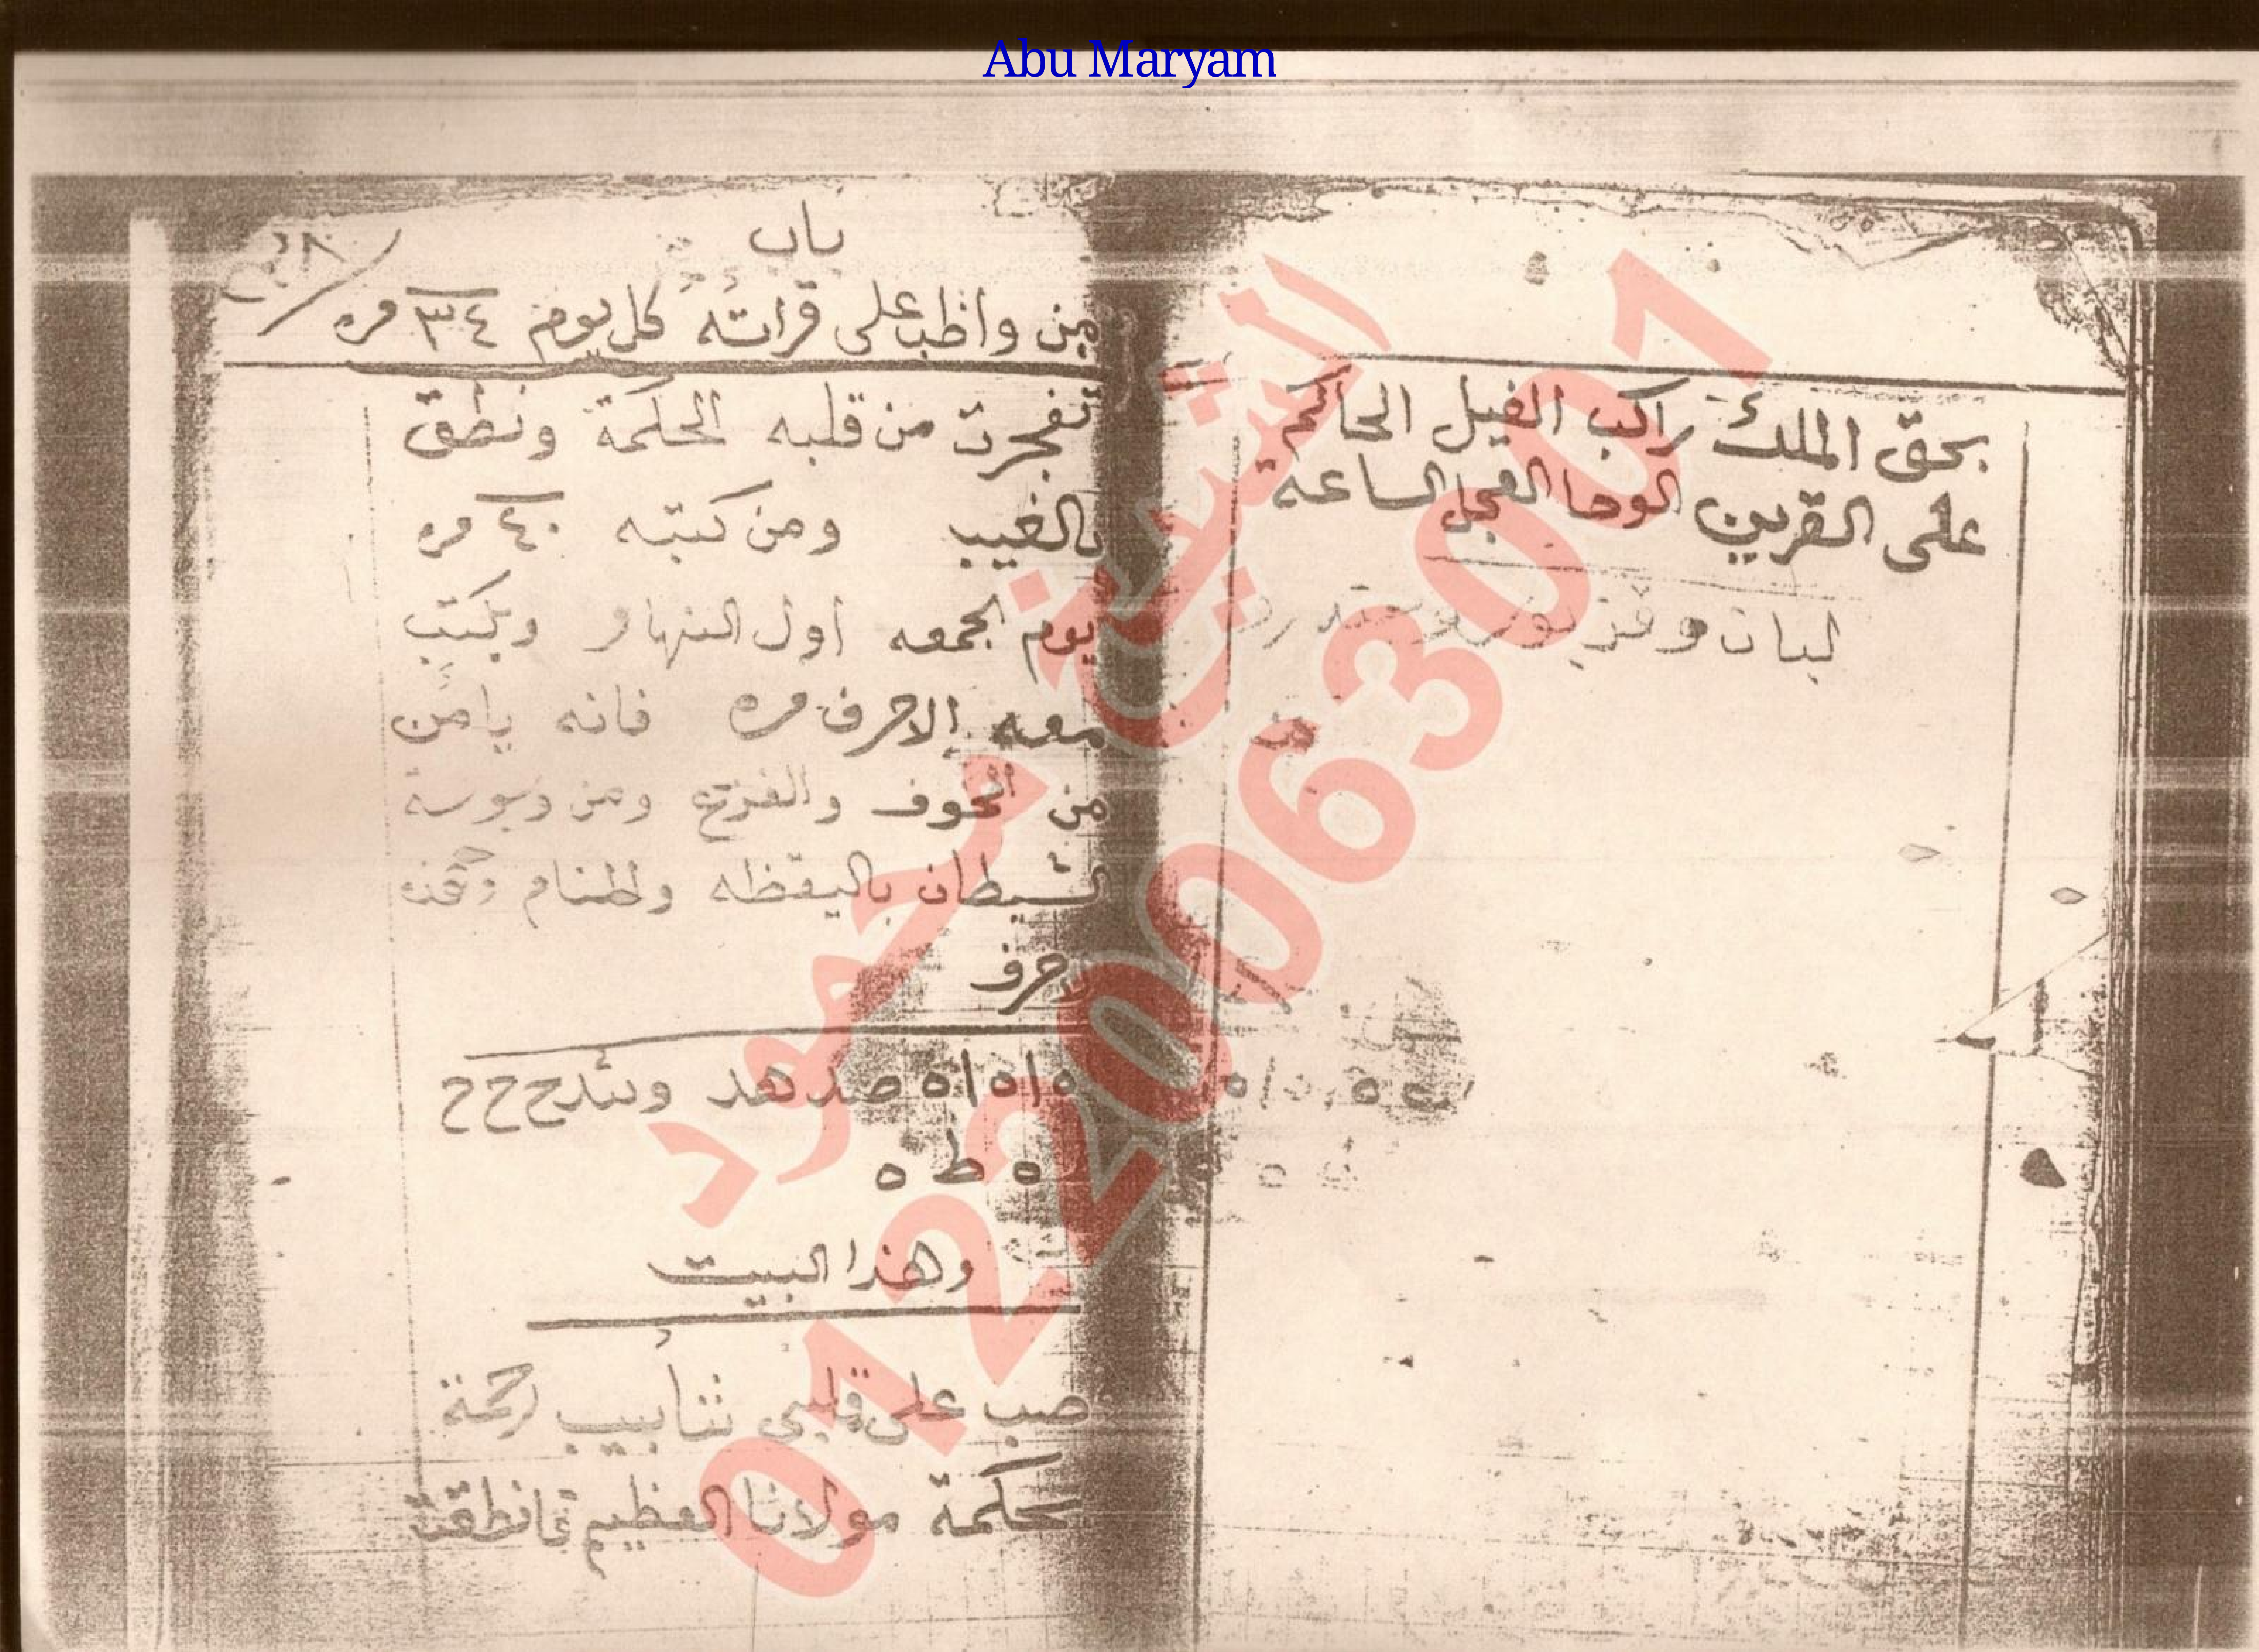 Abu Maryam
بحق الملك راكب الفيل الحاكم
على القرين الوحا العجل الساعة
لبان و
باب
من واظب على قراته كل يوم ٣٤ مره
تفجرت من قلبه الحكمة ونطق
بالغيب ومن كتبه ٤٠ مره
يوم الجمعه اول النهار ويكتب
معه الاحرف مره فانه يامن
من الخوف والفزع ومن وسوسة
الشيطان باليقظه والمنام وهذه
الاحرف
ه ا ه ا ه ا ه صد هد ح ح ح ح
ه ط ه
وهذا البيت
صب على قلبي شأبيب رحمة
بحكمة مولانا العظيم فانطقت
الشيخ محمود
01220063001